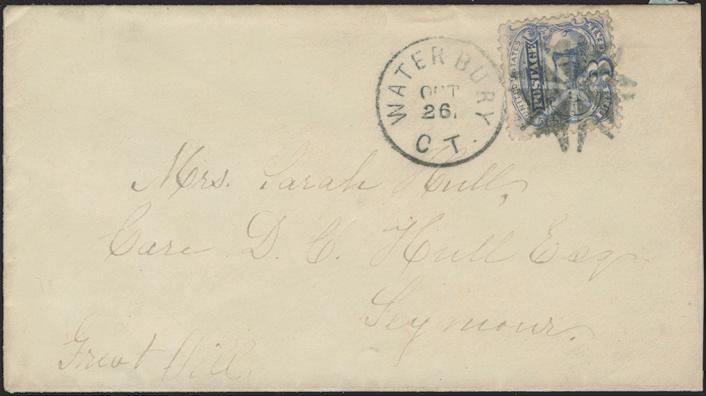 WATERBURY
OCT
26.
CT.
UNITED STATES
POSTAGE
3
Mrs. Sarah Hull,
Care D. C. Hull Esq
Seymour.
Great Hill.